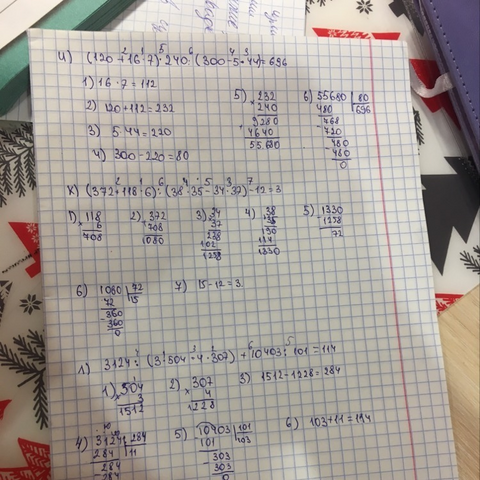 и) (120+16·7)·240:(300-5·44)=696
1) 16·7=112
2) 120+112=232
3) 5·44=220
4) 300-220=80
5) 232
× 240
9280
4640
55680
6) 55680 | 80
480 | 696
- 768
720
- 480
480
0
к) (372+118·6):(38·35-34·37)-12=3
1) 118
× 6
708
2) 372
708
1080
3) 34
× 37
238
102
1258
4) 38
35
190
114
1330
5) 1330
- 1258
72
6) 1080 | 72
72 | 15
- 360
360
0
7) 15-12=3
л) 3124:(3·504-4·307)+10403:101=114
1) 504
× 3
1512
2) 307
× 4
1228
3) 1512-1228=284
4) 3124 | 284
284 | 11
284
- 284
5) 10403 | 101
101 | 103
- 303
303
0
6) 103+11=114